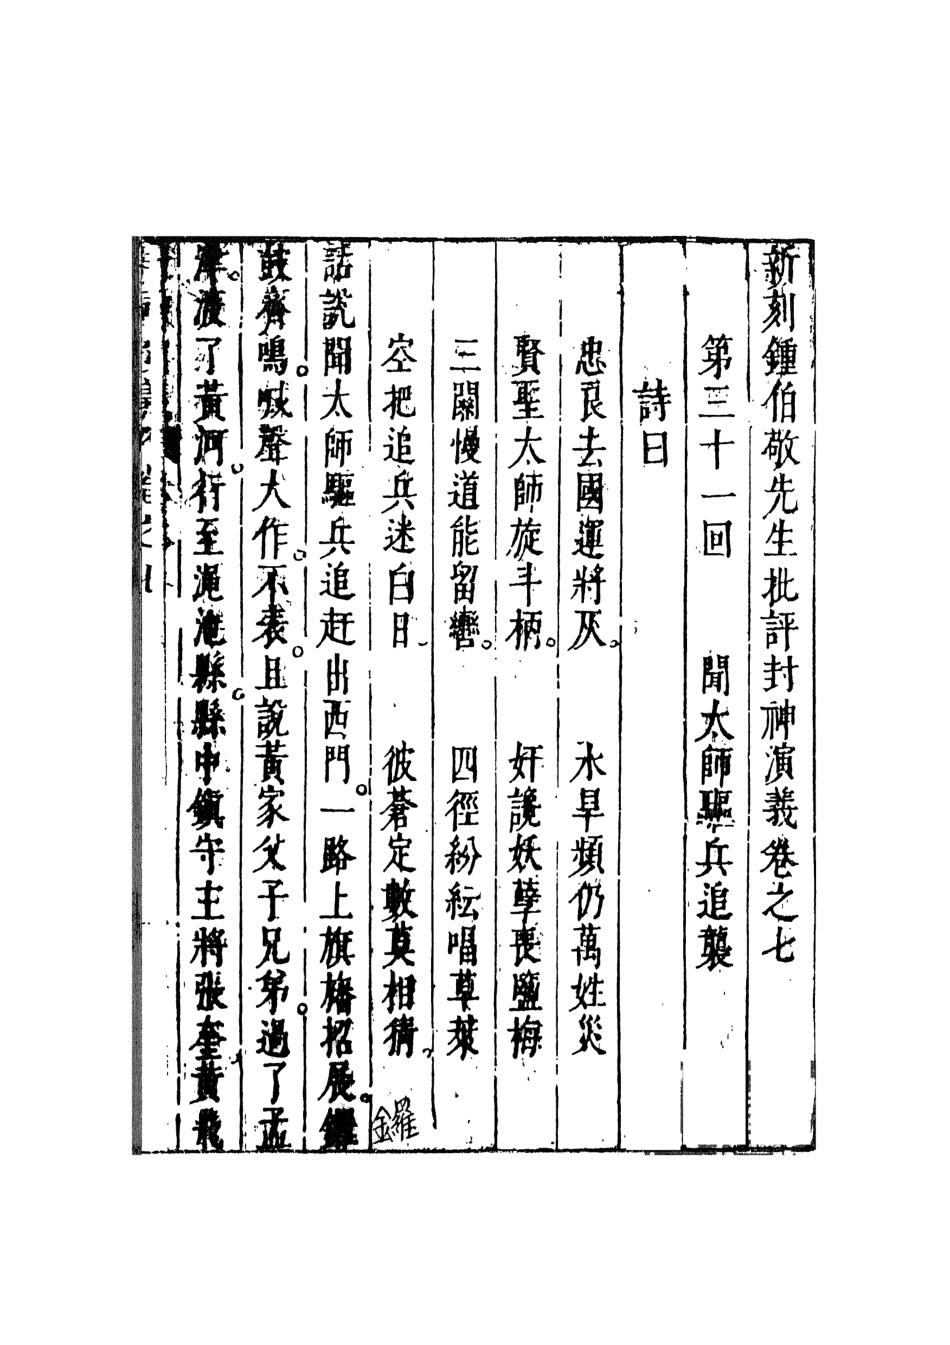 新刻鍾伯敬先生批評封神演義卷之七
第三十一回　聞太師驅兵追襲
詩曰
忠良去國運將灰。　水旱頻仍萬姓災
賢聖太師旋斗柄。　奸讒妖孽喪鹽梅
三關慢道能留轡。　四徑紛紜唱草萊
空把追兵迷白日　彼蒼定數莫相猜。
話說聞太師驅兵追赶出西門。一路上旗旛招展。鑼
鑼
鼓齊鳴。喊聲大作。不表。且說黃家父子兄弟。過了孟
津。渡了黃河。行至澠池縣。縣中鎮守主將張奎黃飛